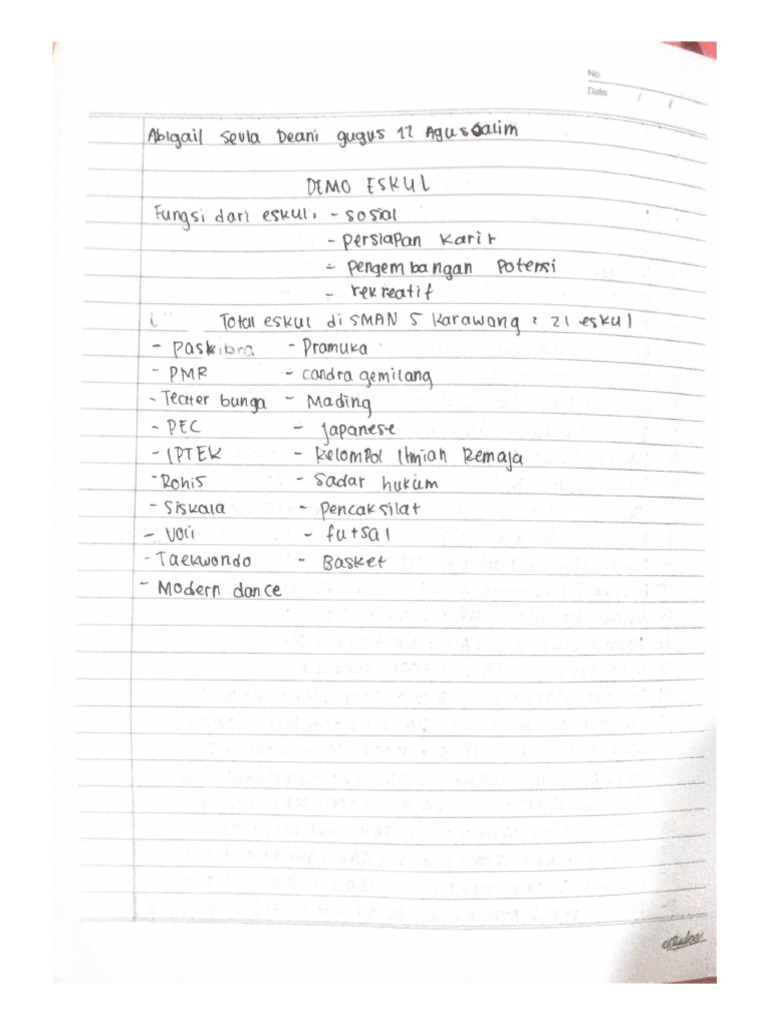 No.
Date / /
Abigail Sevla Deani gugus 12 Agus Salim
DEMO ESKUL
Fungsi dari eskul: - sosial
- persiapan karir
- pengembangan potensi
- rekreatif
Total eskul di SMAN 5 Karawang = 21 eskul
- paskibra - Pramuka
- PMR - candra gemilang
- Teater bunga - Mading
- PEC - Japanese
- IPTEK - Kelompol Ilmiah Remaja
- Rohis - Sadar hukum
- Siskala - pencak silat
- Voli - futsal
- Taekwondo - Basket
- Modern dance